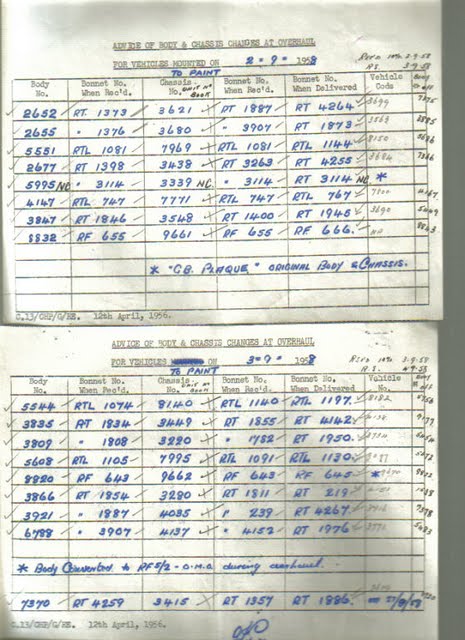 ADVICE OF BODY & CHASSIS CHANGES AT OVERHAUL
FOR VEHICLES MOUNTED ON 2 = 9 = 1958 Rec'd 10am 3-9-58
TO PAINT 3-9-58
Body No. Bonnet No. When Rec'd. Chassis No. UNIT No BOOK Bonnet No. When Rec'd. Bonnet No. When Delivered Vehicle Code
2652 RT 1373 3621 RT 1887 RT 4264 3699
2655 " 1376 3680 " 3907 RT 1873
5551 RTL 1081 7969 RTL 1081 RTL 1144
2677 RT 1398 3438 RT 3263 RT 4255
5995 NC " 3114 3339 NC " 3114 RT 3114 NC *
4147 RTL 747 7771 RTL 747 RTL 767
3847 RT 1846 3548 RT 1400 RT 1945
8832 RF 655 9661 RF 655 RF 666
* "G.B. PLAQUE" ORIGINAL BODY & CHASSIS.
C.13/CHP/G/RE. 12th April, 1956.
ADVICE OF BODY & CHASSIS CHANGES AT OVERHAUL
FOR VEHICLES MOUNTED ON 3 = 9 = 1958 Rec'd 10am 3-9-58
TO PAINT
Body No. Bonnet No. When Rec'd. Chassis No. UNIT No BOOK Bonnet No. When Rec'd. Bonnet No. When Delivered Vehicle No.
5544 RTL 1074 8140 RTL 1140 RTL 1197 8182
3835 RT 1834 3449 RT 1855 RT 4142
3809 " 1808 3220 " 1782 RT 1950
5608 RTL 1105 7995 RTL 1091 RTL 1130
8820 RF 643 9662 RF 643 RF 645 *
3866 RT 1854 3280 RT 1811 RT 219
3921 " 1887 4035 " 239 RT 4267
6788 " 3907 4137 " 4152 RT 1976
* Body Converted to RF5/2 - O.M.O during overhaul.
7370 RT 4259 3415 RT 1357 RT 1886
C.13/CHP/G/RE. 12th April, 1956.